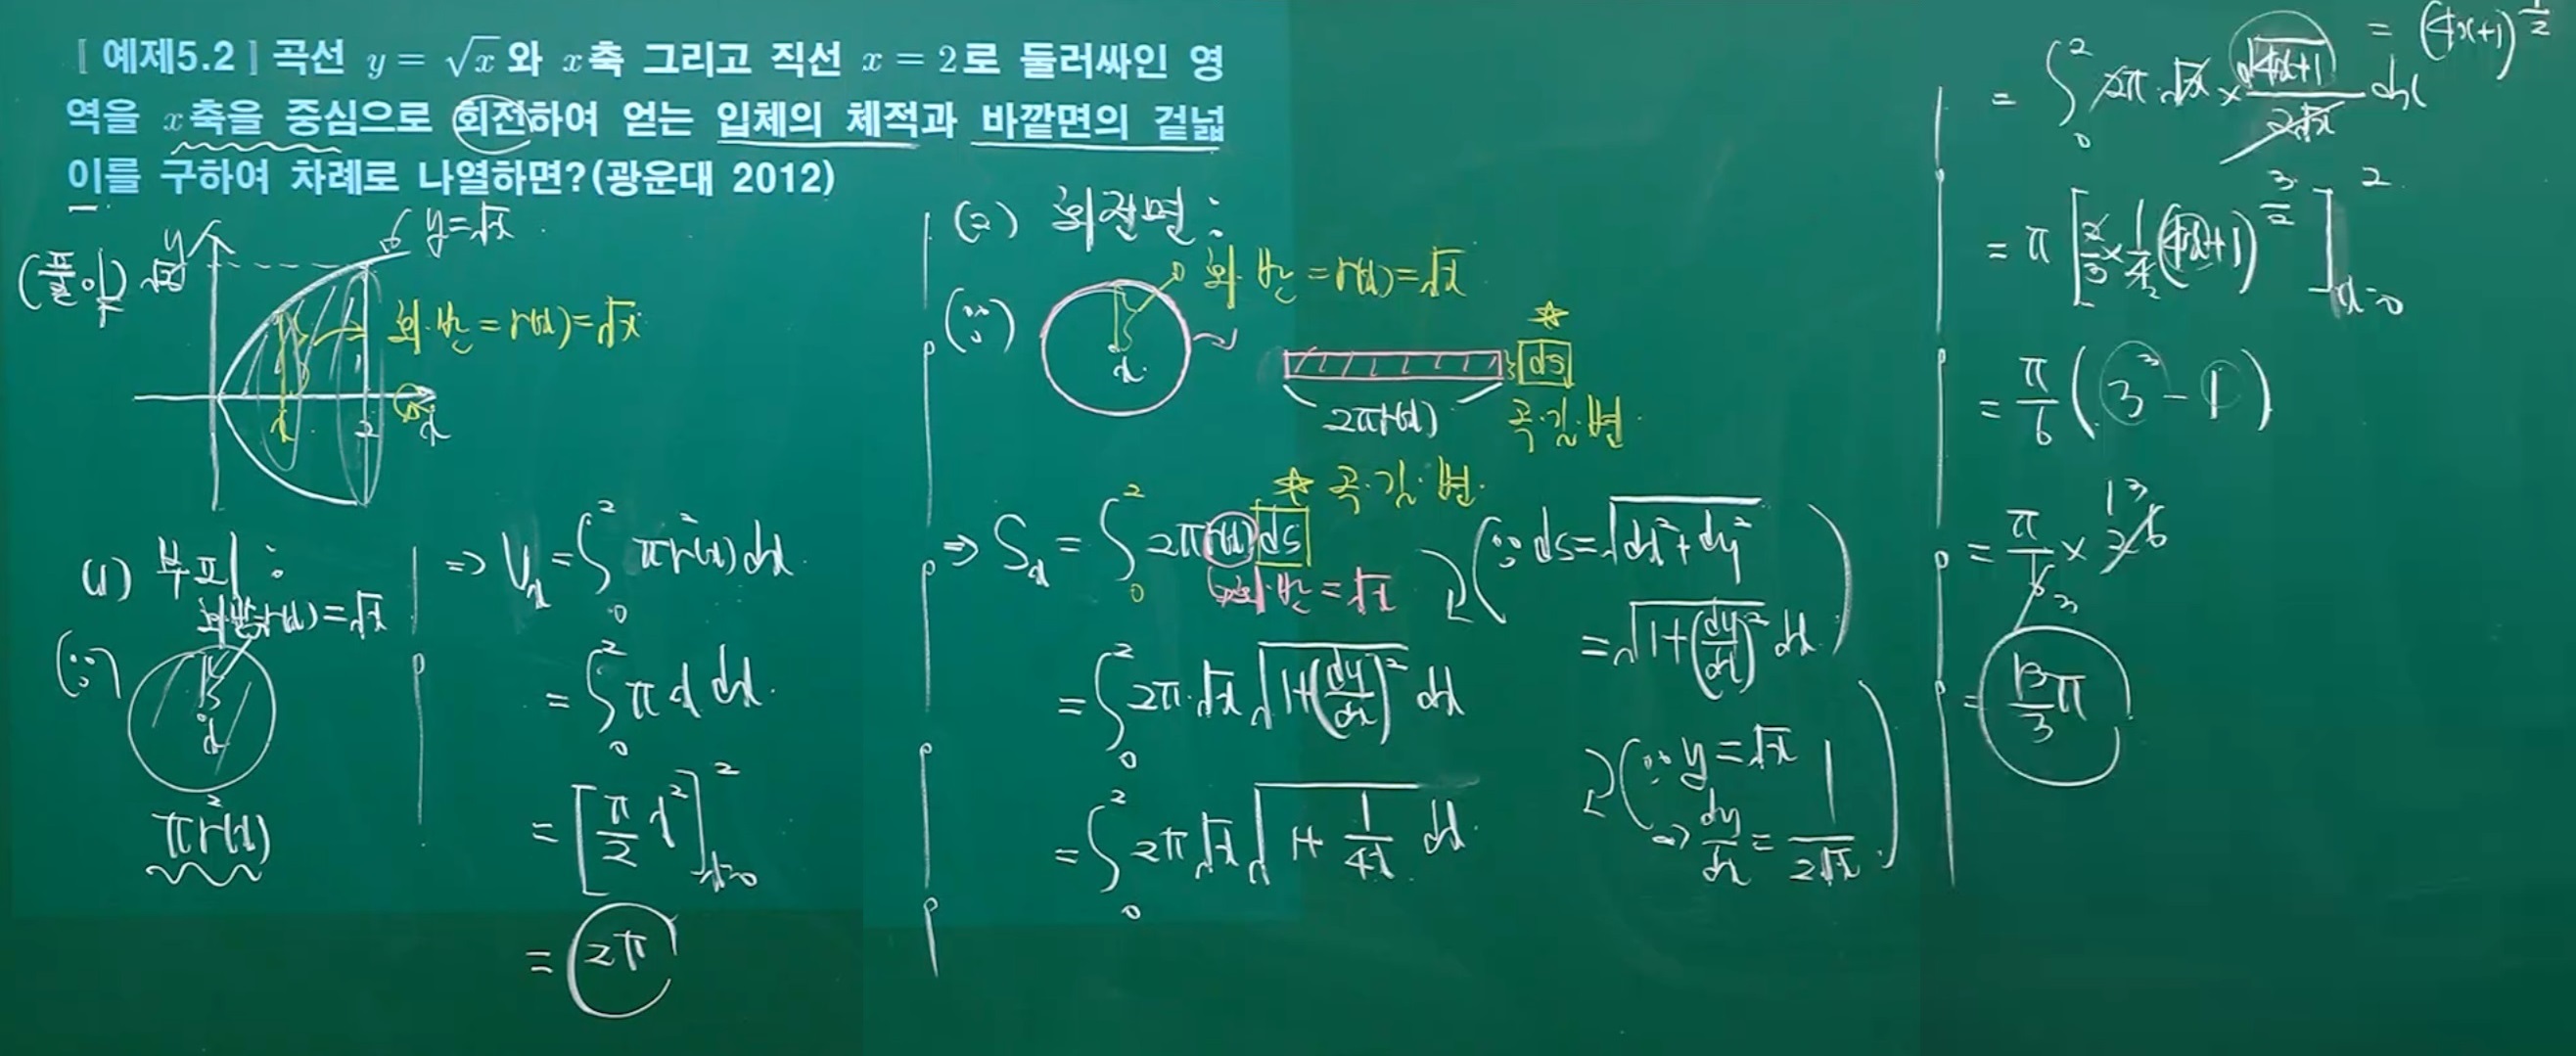 [ 예제5.2 ] 곡선 y = √x 와 x축 그리고 직선 x = 2로 둘러싸인 영
역을 x축을 중심으로 회전하여 얻는 입체의 체적과 바깥면의 겉넓
이를 구하여 차례로 나열하면?(광운대 2012)
(풀이)
y
y=√x
회·반 = r(x)=√x
x
2
x
(1) 부피 :
회·반=r(x)=√x
(∵)
x
πr²(x)
⇒ Vx = ∫₀² πr²(x) dx
= ∫₀² π x dx
= [π/2 x²]²ₓ₌₀
= 2π
(2) 회전면 :
(∵)
회·반 = r(x)=√x
x
☆
ds
2πr(x)
곡·길·변
☆ 곡·길·변
⇒ Sx = ∫₀² 2πr(x) ds
회·반 = √x
= ∫₀² 2π·√x √(1+(dy/dx)²) dx
= ∫₀² 2π√x √(1+ 1/4x) dx
(∵ ds=√(dx²+dy²)
=√(1+(dy/dx)²) dx)
(∵ y=√x
⇒ dy/dx = 1/2√x)
= ∫₀² 2π·√x × √(4x+1)/2√x dx
= (4x+1)^1/2
= π [2/3 × 1/4 (4x+1)^3/2]²ₓ₌₀
= π/6 (3³ - 1)
= π/6 × 26
13
3
= 13/3 π